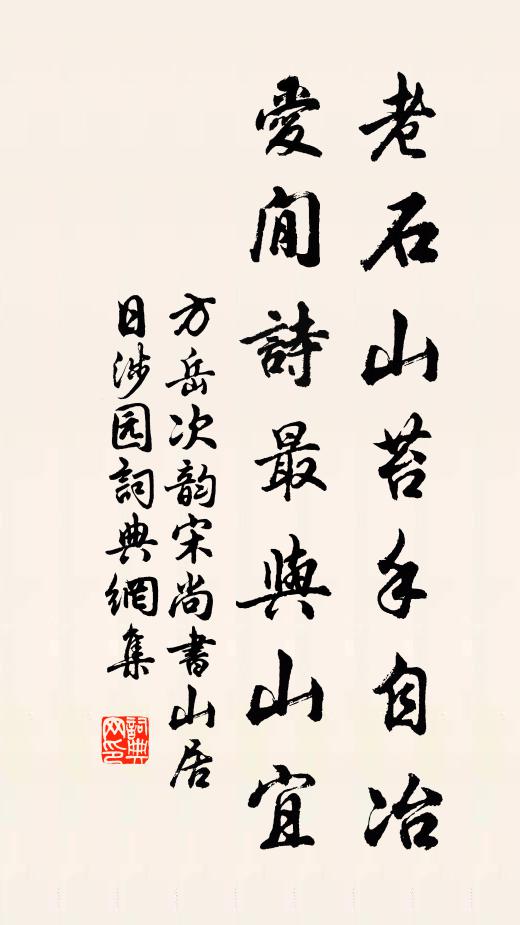 老石山苔手自冶
愛閒詩最與山宜
方岳次韵宋尚書山居
日涉园詞典網集
詞典网印